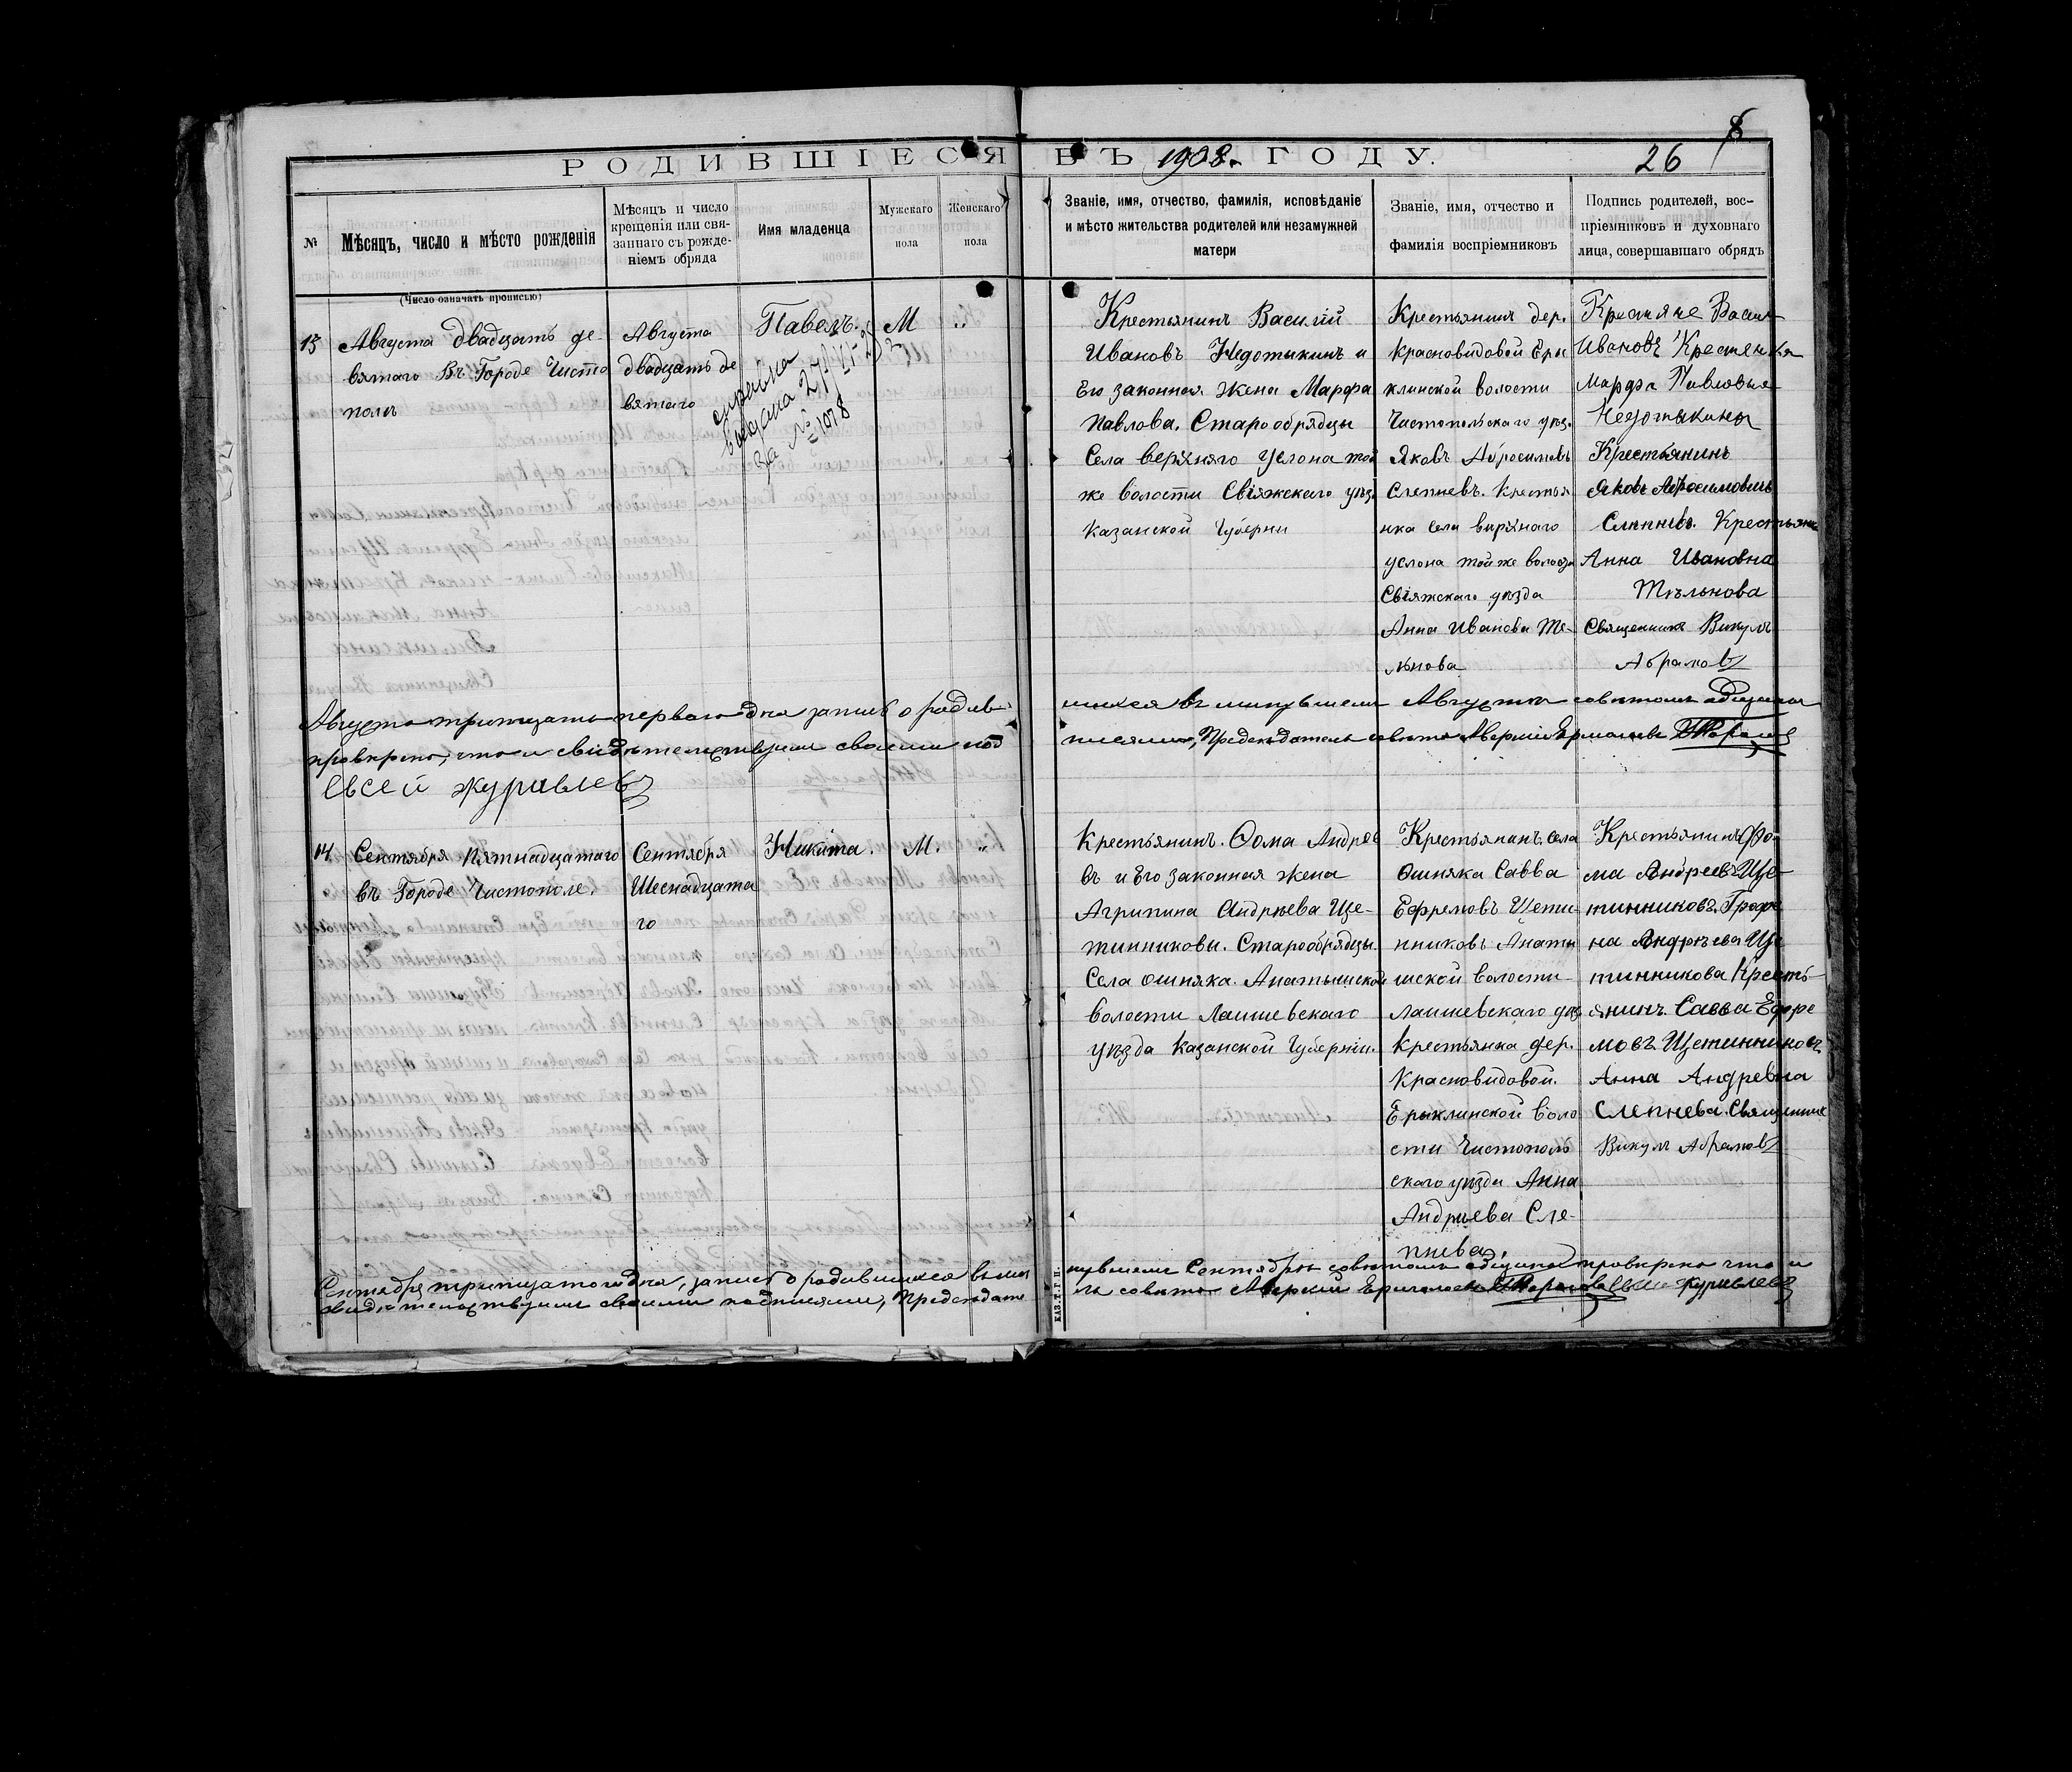 8
РОДИВШІЕСЯ ВЪ 1908. ГОДУ.
26
№
Мѣсяцъ, число и мѣсто рожденія
Мѣсяцъ и число
крещенія или свя-
заннаго съ рожде-
ніемъ обряда
Имя младенца
Мужскаго
пола
Женскаго
пола
Званіе, имя, отчество, фамилія, исповѣданіе
и мѣсто жительства родителей или незамужней
матери
Званіе, имя, отчество и
фамилія воспріемниковъ
Подпись родителей, вос-
пріемниковъ и духовнаго
лица, совершавшаго обрядъ
(Число означать прописью)
13
Августа двадцать де-
вятаго Въ Городе Чисто
поли
Августа
двадцать де
вятаго
Павелъ.
справка
выдана
за № 1078
М
„
Крестьянинъ Василій
Ивановъ Недотыкинъ и
Его законная жена Марфа
Павлова. Старообрядцы
Села верхняго Услона той
же волости Свіяжскаго уѣз.
Казанской Губерни
Крестьянин дер.
Красновидовой Еры
клинской волости
Чистопольскаго уѣз.
Яковъ Абросимовъ
Слепневъ. Крестья
нка села верхняго
услона той же волости
Свіяжскаго уѣзда
Анна Иванова Те-
льнова
Ивановъ Крестенка
Марфа Павловна
Недотыкины
Крестьянинъ
Яковъ Абросимовичъ
Слепневъ. Крестьянка
Анна Ивановна
Тѣльнова
Священникъ Викулъ
Абрамовъ
Августа тритцать перваго дня запись о родив-
шихся въ минувшем Августе советомъ общины
проверено, что и свидетельствуем своими под
писями, Председатель совета Аверкий Ермолаев
Евсей Журавлев
14
Сентября Пятнадцатаго
въ Городе Чистополе.
Сентября
Шеснадцата
го
Никита.
М.
„
Крестьянинъ. Ѳома Андрее
въ и Его законная жена
Агрипина Андрѣева Ще-
тинникови. Старообрядцы.
Села Ошняка. Анатышской
волости Лаишевскаго
уѣзда Казанской Губерніи.
Крестьянанъ. села
Ошняка Савва
Ефремовъ Щети-
нниковъ Анаты
шской волости-
лаишевскаго уѣз
Крестьянка дер.
Красновидовой.
Ерыклинской воло
сти Чистополь
скаго уѣзда Анна
Андриева Сле-
пнева.
Крестьянинъ Фо-
ма Андреевъ Ще-
тинниковъ. Грефе
на Андрѣева Ще
тинникова Кресть-
янинъ Савва Ефре
мовъ Щетинниковъ
Анна Андревна
Слепнева. Священник
Викул Абрамовъ
Сентября тритцатого дня, запись о родившихся в ми
нувшем Сентябре советом общины проверено что и
свидетельствуем своими подписями, Председате
ль совета Аверкий Ермолаев Евсей Журавлев
КАЗ. Т. Г. П.